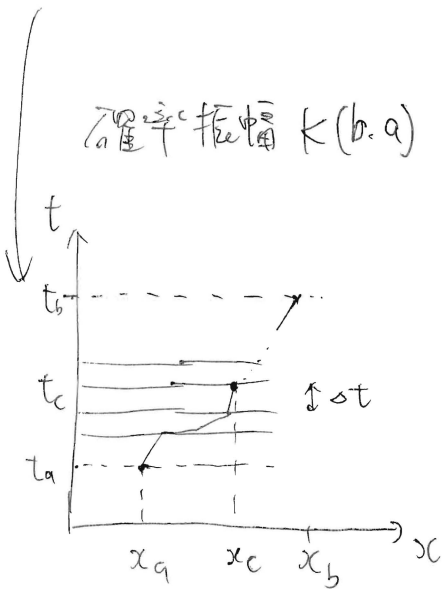 確率振幅 K(b.a)
t
t_b
t_c
↕ Δt
t_a
x_a x_c x_b x